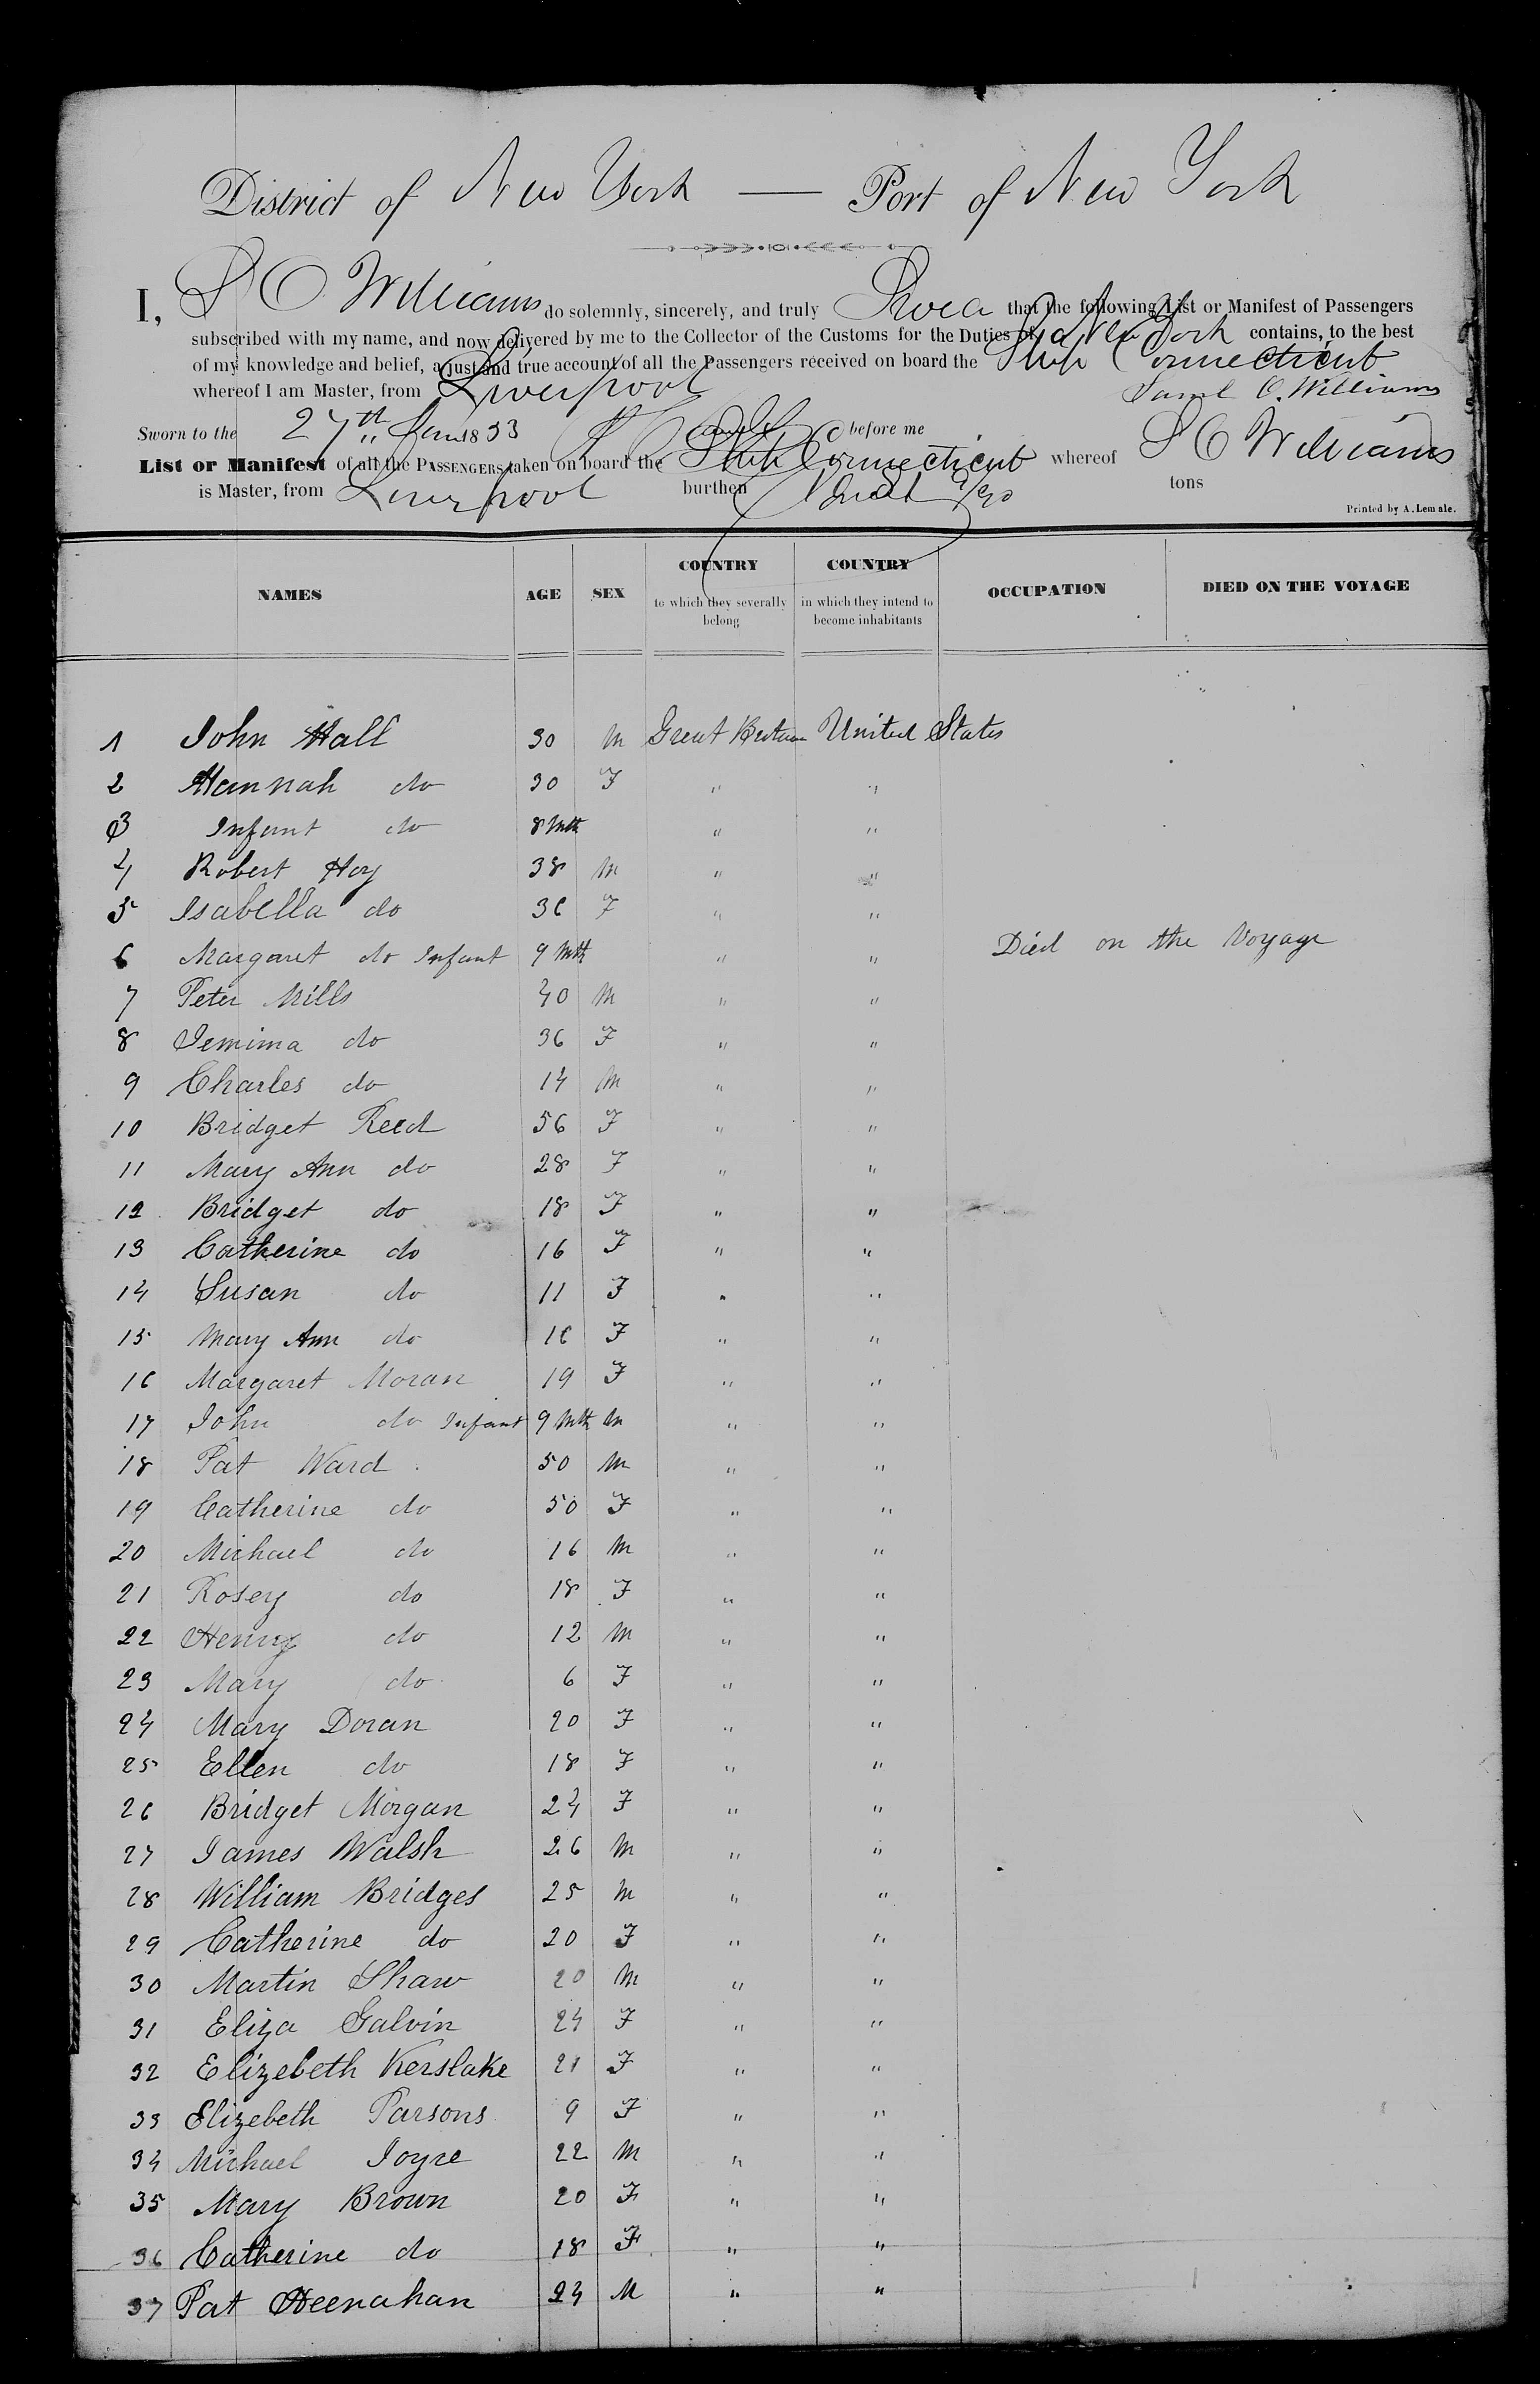 District of New York — Port of New York
I, S C Williams do solemnly, sincerely, and truly Swear that the following List or Manifest of Passengers
subscribed with my name, and now delivered by me to the Collector of the Customs for the Duties of New York contains, to the best
of my knowledge and belief, a just and true account of all the Passengers received on board the Ship Connecticut
whereof I am Master, from Liverpool Saml C. Williams
Sworn to the 27th Jan 1853 before me
List or Manifest of all the PASSENGERS taken on board the Ship Connecticut whereof S C Williams
is Master, from Liverpool burthen tons
Printed by A. Lemale.
NAMES AGE SEX COUNTRY to which they severally belong COUNTRY in which they intend to become inhabitants OCCUPATION DIED ON THE VOYAGE
1 John Hall 30 M Great Britain United States
2 Hannah do 30 F " "
3 Infant do 8 Mth " "
4 Robert Hoy 38 M " "
5 Isabella do 36 F " "
6 Margaret do Infant 9 Mth " " Died on the Voyage
7 Peter Mills 40 M " "
8 Jemima do 36 F " "
9 Charles do 14 M " "
10 Bridget Reed 56 F " "
11 Mary Ann do 28 F " "
12 Bridget do 18 F " "
13 Catherine do 16 F " "
14 Susan do 11 F " "
15 Mary Ann do 16 F " "
16 Margaret Moran 19 F " "
17 John do Infant 9 Mth M " "
18 Pat Ward 50 M " "
19 Catherine do 50 F " "
20 Michael do 16 M " "
21 Rosey do 18 F " "
22 Henry do 12 M " "
23 Mary do 6 F " "
24 Mary Doran 20 F " "
25 Ellen do 18 F " "
26 Bridget Morgan 24 F " "
27 James Walsh 26 M " "
28 William Bridges 25 M " "
29 Catherine do 20 F " "
30 Martin Shaw 20 M " "
31 Eliza Galvin 24 F " "
32 Elizebeth Kerslake 21 F " "
33 Elizebeth Parsons 9 F " "
34 Michael Joyce 22 M " "
35 Mary Brown 20 F " "
36 Catherine do 18 F " "
37 Pat Heenahan 24 M " "